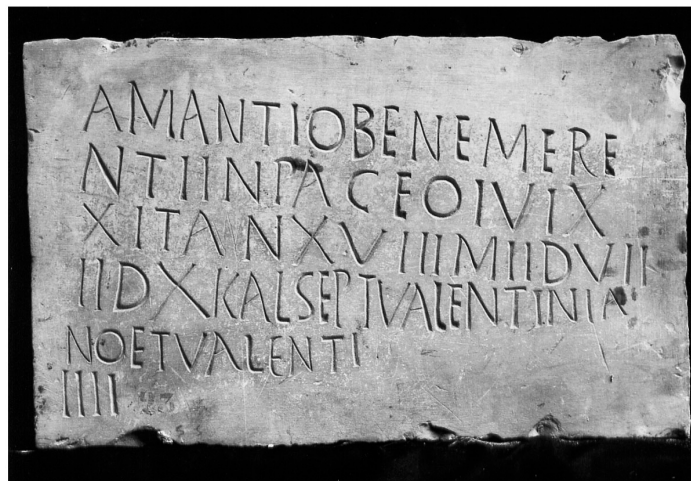 AMANTIOBENEMERE
NTIINPACEOIVIX
XITANXVIIIMIIDVII
IIDXKALSEPTVALENTINIA
NOETVALENTI
IIII 23